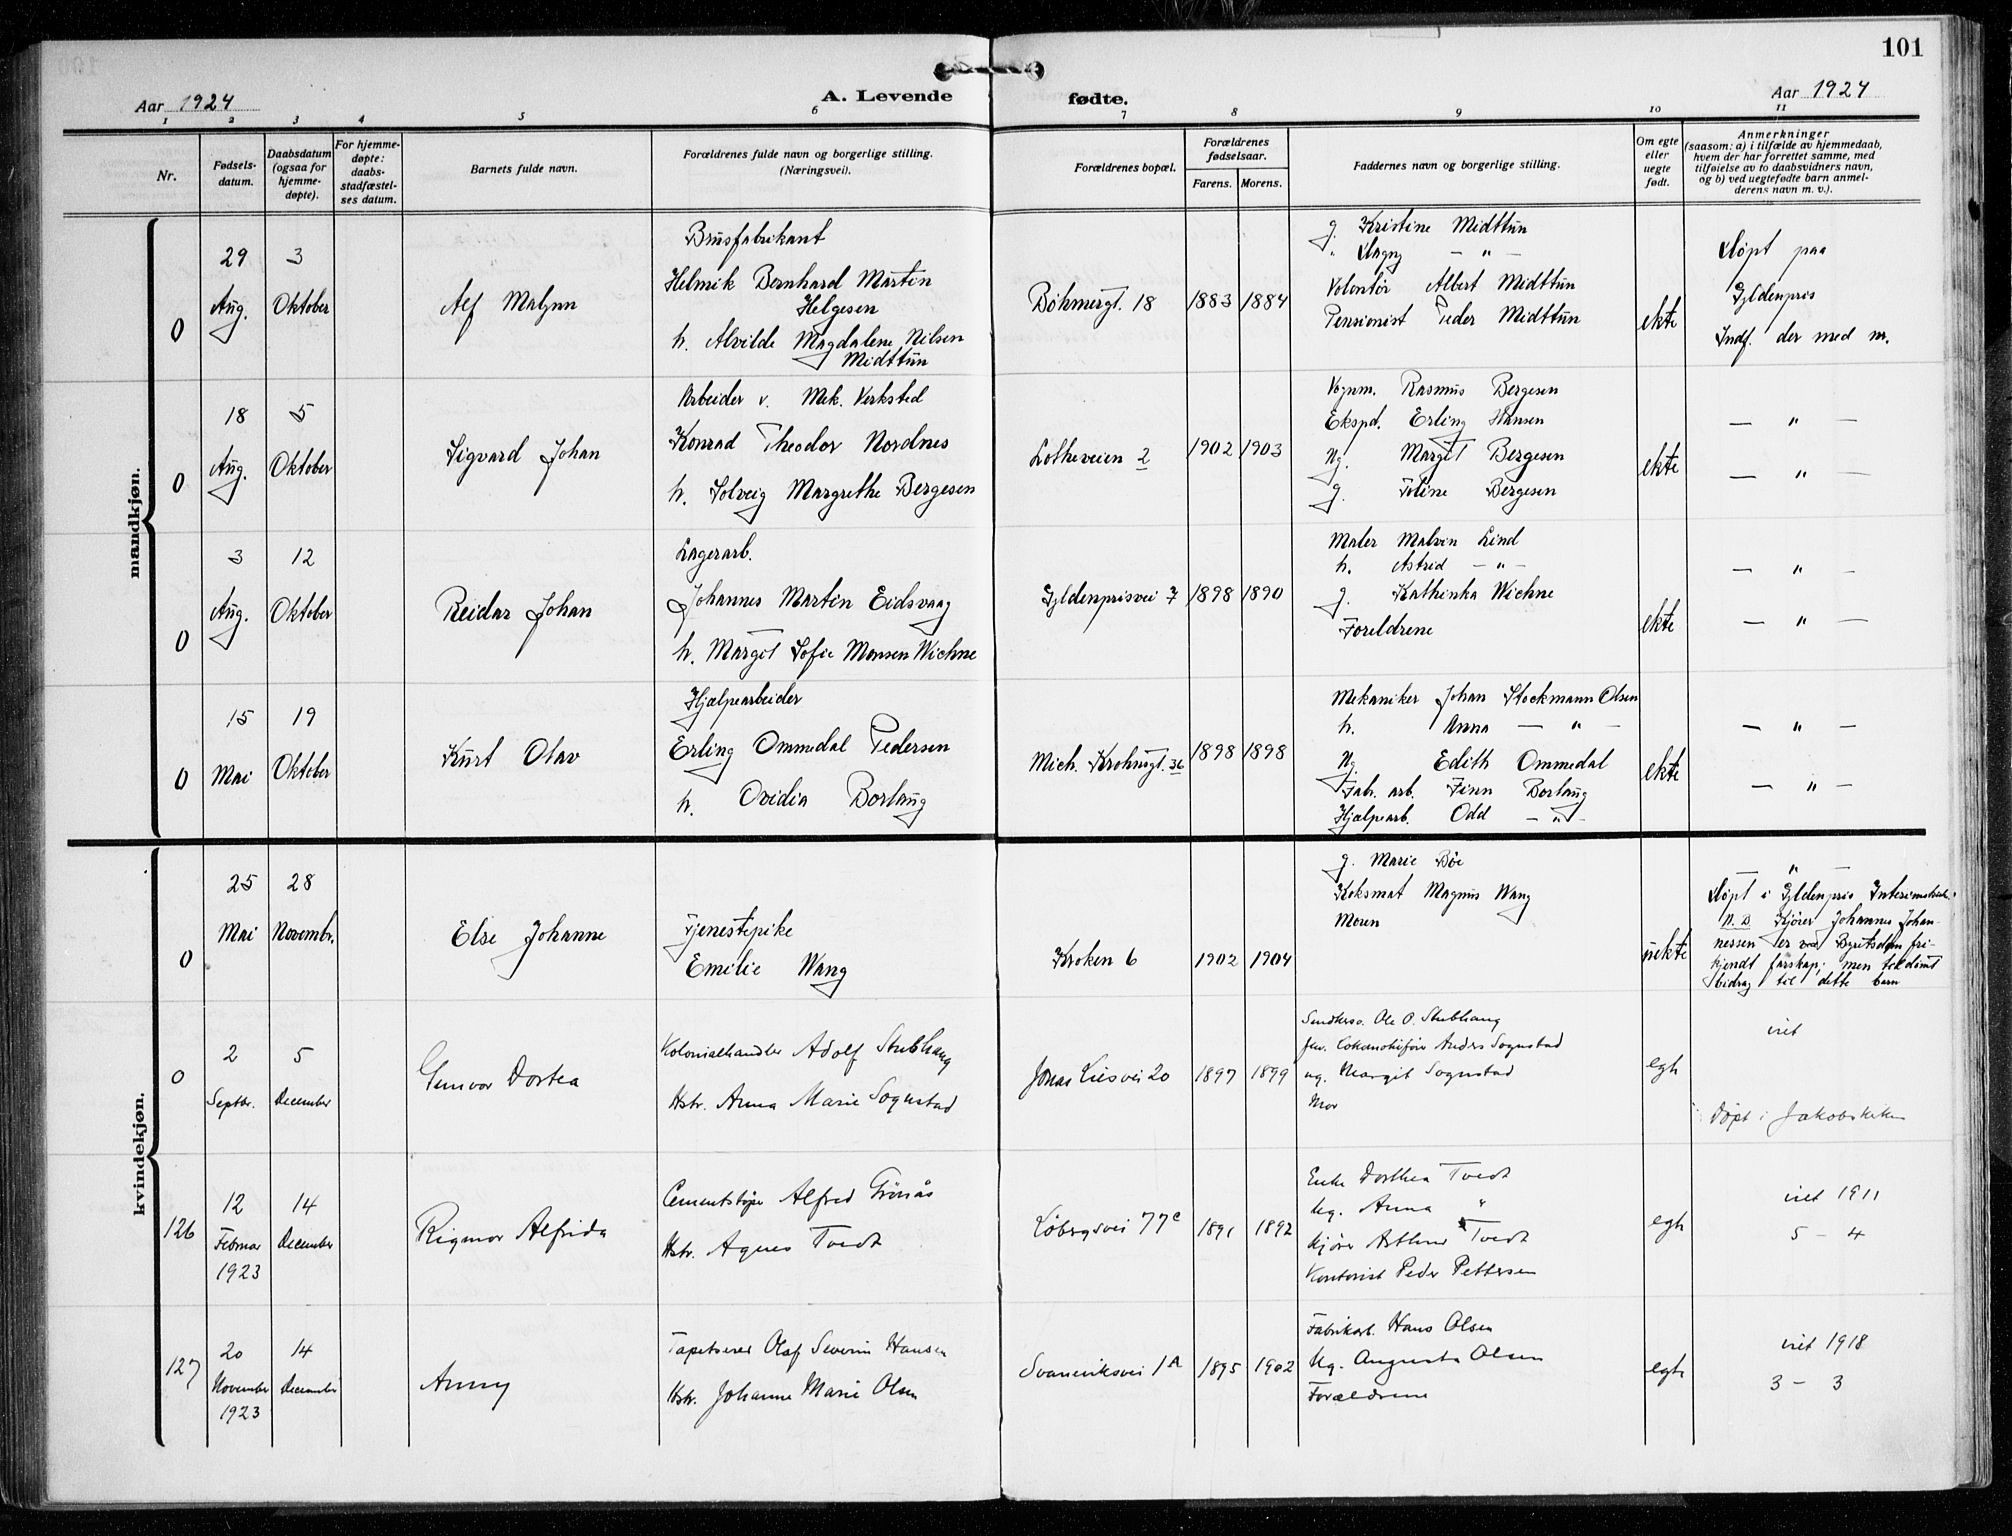 101
Aar 1924
A. Levende fødte.
Aar 1924
1 2 3 4 5 6 7 8 9 10 11
Nr.
Fødsels-
datum.
Daabsdatum
(ogsaa for
hjemme-
døpte).
For hjemme-
døpte:
daabs-
stadfæstel-
ses datum.
Barnets fulde navn.
Forældrenes fulde navn og borgerlige stilling.
(Næringsvei).
Forældrenes bopæl.
Forældrenes
fødselsaar.
Farens. Morens.
Faddernes navn og borgerlige stilling.
Om egte
eller
uegte
født.
Anmerkninger
(saasom: a) i tilfælde av hjemmedaab,
hvem der har forrettet samme, med
tilføielse av to daabsvidners navn,
og b) ved uegtefødte barn anmel-
derens navn m. v.).
mandkjøn.
0
29
Aug.
3
Oktober
Alf Malynn
Brusfabrikant
Helmik Bernhard Martin
Helgesen
h. Alvilde Magdalene Nilsen
Midttun
Bøhmergt. 18
1883 1884
g. Kristine Midttun
" Magny — " —
Volontør Albert Midttun
Pensionist Peder Midttun
ekte
Døpt paa
Gyldenpris
Indf. der med m.
0
18
Aug.
5
Oktober
Sigvard Johan
Arbeider v. Mek. Verksted
Konrad Theodor Nordnes
h. Solveig Margrethe Bergesen
Lotheveien 2
1902 1903
Vognm. Rasmus Bergesen
Ekspd. Erling Hansen
Ug. Margit Bergesen
g. Toline Bergesen
ekte
— " —
— " —
0
3
Aug.
12
Oktober
Reidar Johan
Lagerarb.
Johannes Martin Eidsvaag
h. Margit Sofie Monsen Wichne
Gyldenprisvei 7
1898 1890
Maler Malvin Lind
h. Astrid — " —
g. Kathinka Wichne
Foreldrene
ekte
— " —
— " —
0
15
Mai
19
Oktober
Kurt Olav
Hjælpearbeider
Erling Ommedal Pedersen
h. Ovidia Borlaug
Mich. Krohnsgt. 36
1898 1898
Mekaniker Johan Stockmann Olsen
h. Anna — " —
Ug. Edith Ommedal
Fabr. arb. Finn Borlaug
Hjælpearb. Odd — " —
ekte
— " —
— " —
kvindekjøn.
0
25
Mai
28
Novembr.
Else Johanne
Tjenestepike
Emilie Wang
Kroken 6
1902 1904
g. Marie Bøe
Koksmat Magnus Wang
Moren
uekte
— " —
Døpt i Gyldenpris
N.B Kjører Johannes Johan-
nessen er ved Byretsdom fri-
kjendt farskap; men tildømt
bidrag til dette barn
0
2
Septbr.
5
December
Gunvor Dortea
Kolonialhandler Adolf Stubhaug
Hstr. Anna Marie Sognstad
Jonas Liesvei 20
1897 1899
Ole O. Stubhaug
Anders Sognstad
ug. Margit Sognstad
Mor
egte
viet
Døpt i Jakobskirken
126
12
Februar
1923
14
December
Rigmor Alfrida
Cementstøper Alfred Grønås
Hstr. Agnes Tvedt
Løbergsvei 77c
1891 1892
Enke Dorthea Tvedt
Ug. Anna "
Kjører Arthur Tvedt
Kontorist Peder Pettersen
egte
viet 1911
5 – 4
127
20
November
1923
14
December
Anny
Tapetserer Olaf Severin Hansen
Hstr. Johanne Marie Olsen
Svaneviksvei 1A
1895 1902
Fabrikarb. Hans Olsen
Ug. Augusta Olsen
Forældrene
egte
viet 1918
3 – 3